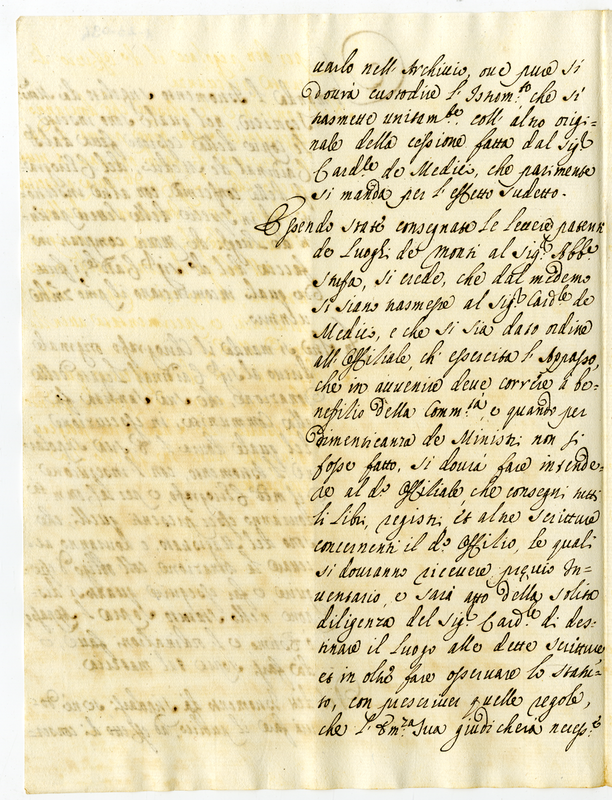 uarlo nell' Archiuio, oue pure si
dourà custodire l' Istrom.to che si
trasmette unitam.te coll' altro origi=
nale della cessione fatta dal Sig.r
Card.le de Medici, che parimente
si manda per l' effetto sudetto.
Essendo state consegnate le lettere patenti
de Luoghi de Monti al Sig.r Abb.e
Stufa, si crede, che dal medemo
si siano trasmesse al Sig.r Card.le de
Medici, e che si sia dato ordine
all' Offitiale, ch' essercita l'
che in auuenire deue correre à be=
nefitio della Comm.tà, e quando per
dimenticanza de Ministri non si
fosse fatto, si dourà fare intende=
re al d.o Offitiale che consegni tutti
li libri, registri, et altre scritture
concernenti il d.o Offitio, le quali
si douranno riceuere preuio In=
uentario, e sarà atto della solita
diligenza del Sig.r Card.le di des=
tinare il luogo alle dette scritture
et in oltre fare osseruare lo statu=
to, con prescriuer quelle regole,
che l' Em.za Sua giudicherà necess.e